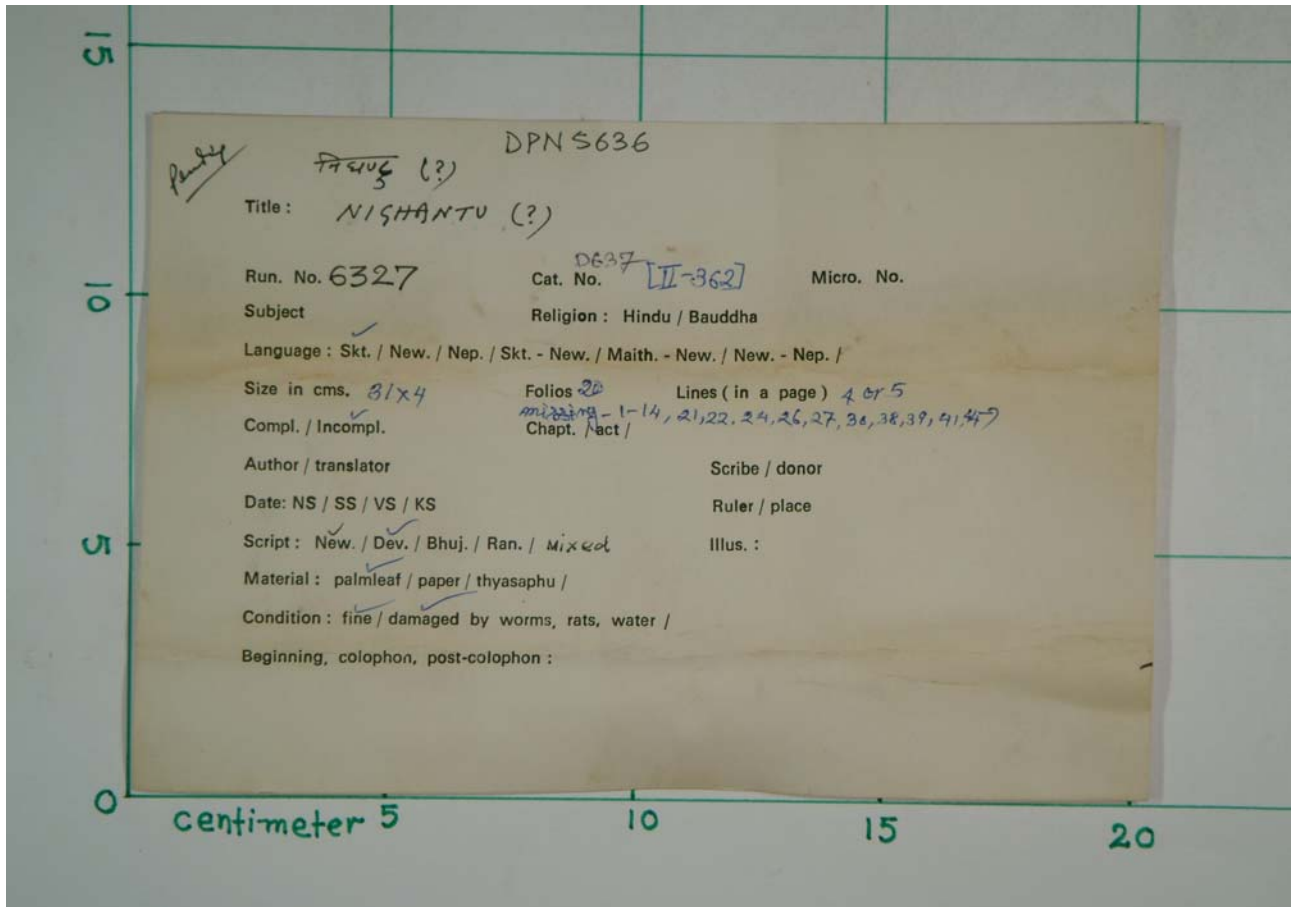 DPN 5636
निघण्टु (?)
Title : NIGHANTU (?)
Run. No. 6327 Cat. No. D637 [II-362] Micro. No.
Subject Religion : Hindu / Bauddha
Language : Skt. / New. / Nep. / Skt. - New. / Maith. - New. / New. - Nep. /
Size in cms. 31x4 Folios 20 Lines ( in a page ) 4 or 5
missing - 1-14, 21, 22, 24, 26, 27, 30, 38, 39, 41,
Compl. / Incompl. Chapt. / act /
Author / translator Scribe / donor
Date: NS / SS / VS / KS Ruler / place
Script : New. / Dev. / Bhuj. / Ran. / Mixed Illus. :
Material : palmleaf / paper / thyasaphu /
Condition : fine / damaged by worms, rats, water /
Beginning, colophon, post-colophon :
15
10
5
0
centimeter 5 10 15 20